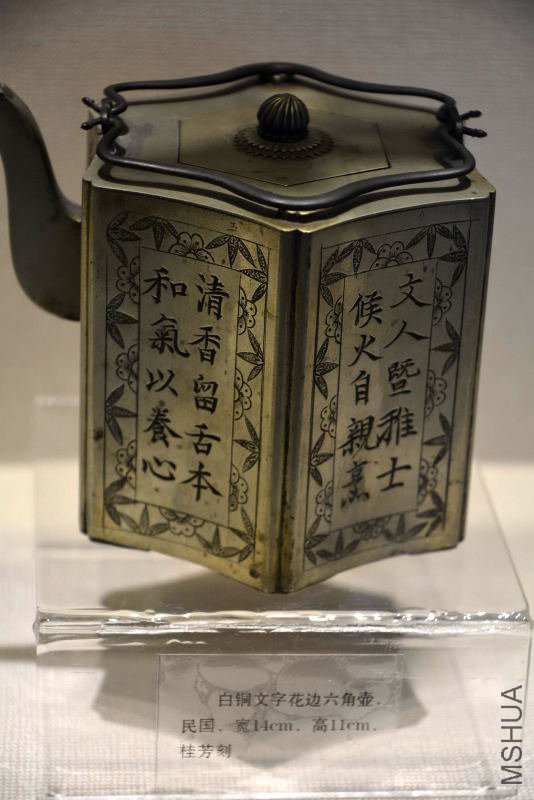 文人暨雅士
候火自親烹
清香留舌本
和氣以養心
白铜文字花边六角壶.
民国、宽14cm、高11cm.
桂芳刻
MSHUA